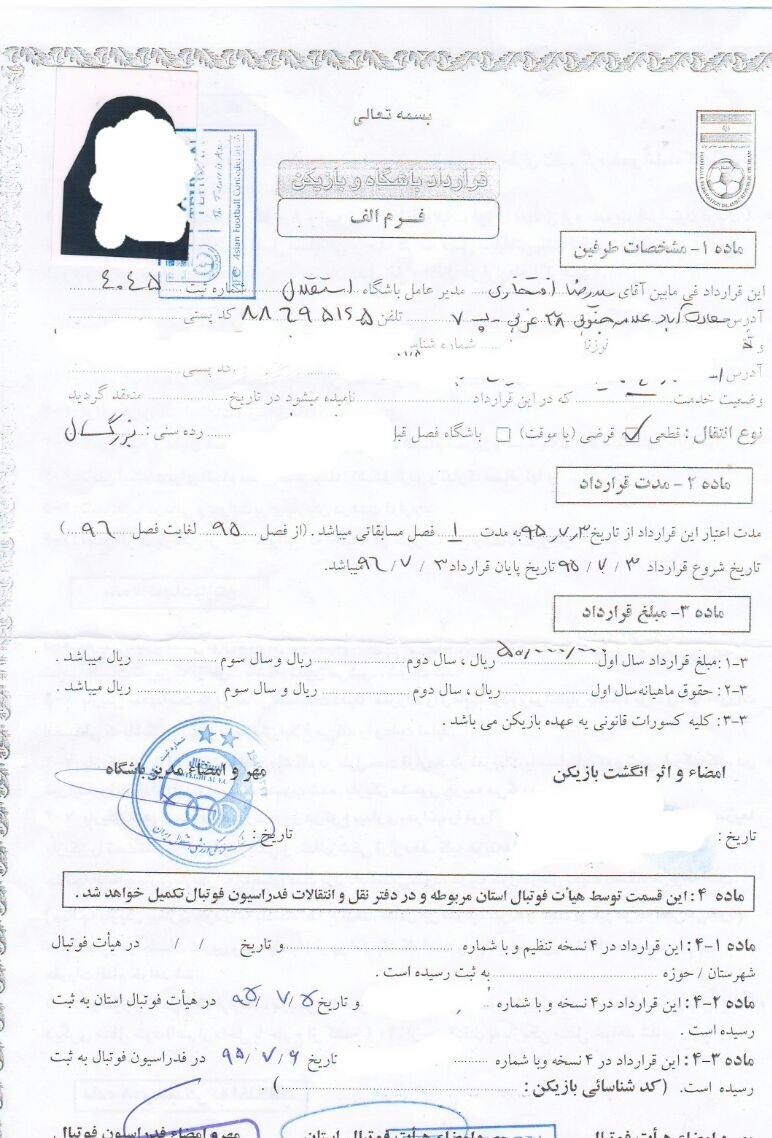 بسمه تعالی
قرارداد باشگاه و بازیکن
فرم الف
Asian Football Confederation
ماده ۱- مشخصات طرفین
این قرارداد فی مابین آقای سیدرضا افتخاری مدیر عامل باشگاه استقلال شماره ثبت ۴۰۴۵
آدرس سعادت آباد علامه جنوبی ۳۸ غربی پ ۷ تلفن ۸۸۶۹۵۱۶۵ کد پستی
و آقای فرزند شماره شناسنامه
آدرس کد پستی
وضعیت خدمت که در این قرارداد نامیده میشود در تاریخ منعقد گردید
نوع انتقال : قطعی ☑ قرضی (یا موقت) □ باشگاه فصل قبل رده سنی : بزرگسال
ماده ۲- مدت قرارداد
مدت اعتبار این قرارداد از تاریخ ۹۵٫۷٫۳ به مدت ۱ فصل مسابقاتی میباشد . (از فصل ۹۵ لغایت فصل ۹۶ )
تاریخ شروع قرارداد ۹۵/۷/۳ تاریخ پایان قرارداد ۹۶/۷/۳ میباشد.
ماده ۳- مبلغ قرارداد
۳-۱: مبلغ قرارداد سال اول ۵۰/۰۰۰/۰۰۰ ریال ، سال دوم ریال و سال سوم ریال میباشد .
۳-۲: حقوق ماهیانه سال اول ریال ، سال دوم ریال و سال سوم ریال میباشد .
۳-۳: کلیه کسورات قانونی به عهده بازیکن می باشد .
امضاء و اثر انگشت بازیکن مهر و امضاء مدیر باشگاه
تاریخ : تاریخ :
ماده ۴ : این قسمت توسط هیأت فوتبال استان مربوطه و در دفتر نقل و انتقالات فدراسیون فوتبال تکمیل خواهد شد .
۴-۱ : این قرارداد در ۴ نسخه تنظیم و با شماره و تاریخ / / در هیأت فوتبال
شهرستان / حوزه به ثبت رسیده است .
۴-۲ : این قرارداد در ۴ نسخه و با شماره و تاریخ ۹۵/۷/۵ در هیأت فوتبال استان به ثبت
رسیده است .
۴-۳ : این قرارداد در ۴ نسخه وبا شماره تاریخ ۹۵/۷/۶ در فدراسیون فوتبال به ثبت
رسیده است. (کد شناسائی بازیکن : )
مهر و امضاء هیأت فوتبال مهر و امضاء هیأت فوتبال استان مهر و امضاء فدراسیون فوتبال